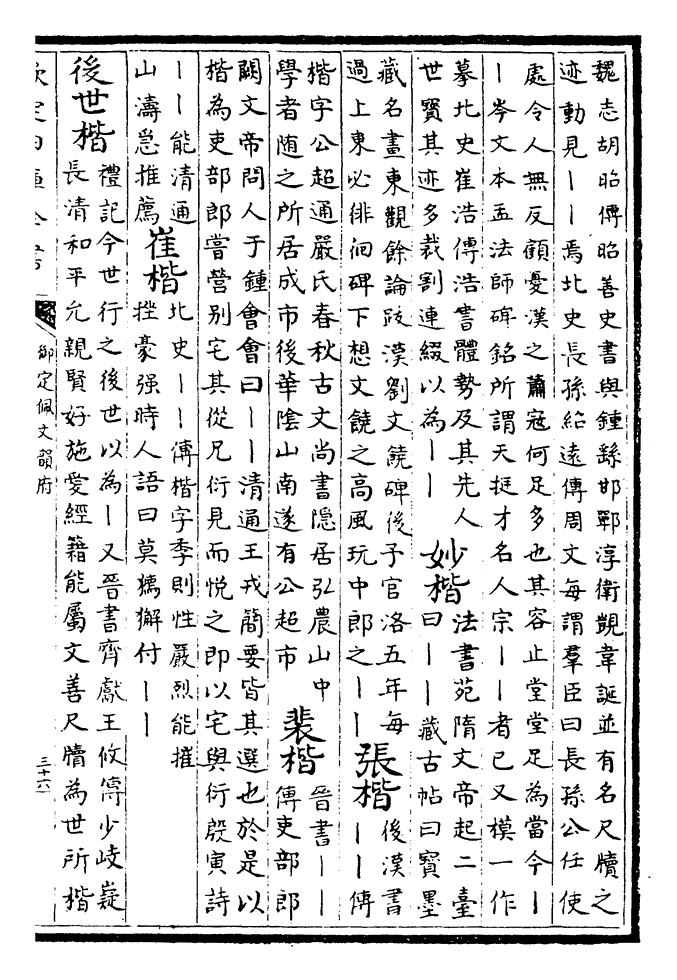 魏志胡昭傳昭善史書與鍾繇邯鄲淳衛覬韋誕並有名尺牘之
迹動見｜｜焉北史長孫紹遠傳周文每謂羣臣曰長孫公任使
處令人無反顧憂漢之蕭寇何足多也其容止堂堂足為當今｜
｜岑文本孟法師碑銘所謂天挺才名人宗｜｜者已又模一作
摹北史崔浩傳浩書體勢及其先人
世寶其迹多裁割連綴以為｜｜
妙楷
法書苑隋文帝起二臺
曰｜｜藏古帖曰寶墨
藏名畫東觀餘論跋漢劉文饒碑後予官洛五年每
過上東必徘徊碑下想文饒之高風玩中郎之｜｜
張楷
後漢書
｜｜傳
楷字公超通嚴氏春秋古文尚書隱居弘農山中
學者隨之所居成市後華陰山南遂有公超市
裴楷
晉書｜｜
傳吏部郎
闕文帝問人于鍾會會曰｜｜清通王戎簡要皆其選也於是以
楷為吏部郎嘗營别宅其從兄衍見而悅之即以宅與衍殷寅詩
｜｜能清通
山濤急推薦
崔楷
北史｜｜傳楷字季則性嚴烈能摧
挫豪强時人語曰莫獬付｜｜
後世楷
禮記今世行之後世以為｜又晉書齊獻王攸傳少岐嶷
長清和平允親賢好施愛經籍能屬文善尺牘為世所楷
欽定四庫全書
御定佩文韻府
三十六